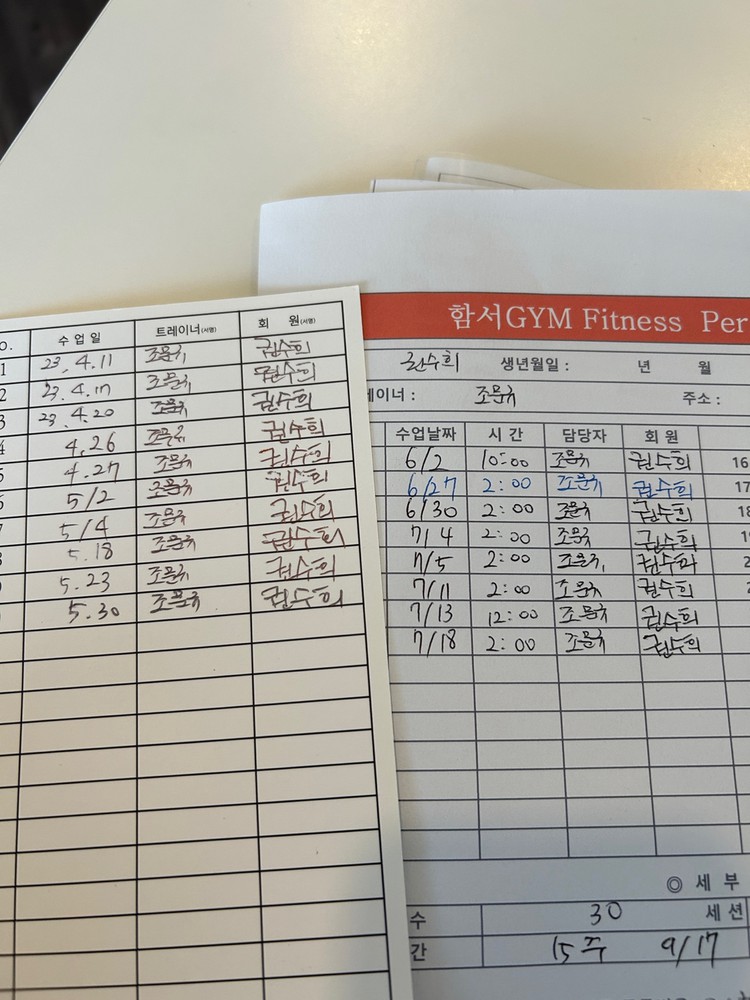 함서GYM Fitness Per
권수희 생년월일 : 년 월
레이너 : 조문휘 주소 :
수업날짜 시 간 담당자 회 원
6/2 10:00 조문휘 권수희 16
6/27 2:00 조문휘 권수희 17
6/30 2:00 조문휘 권수희 18
7/4 2:00 조문휘 권수희
7/5 2:00 조문휘 권수희
7/11 2:00 조문휘 권수희
7/13 12:00 조문휘 권수희
7/18 2:00 조문휘 권수희
◎ 세 부
수 30 세션
간 15주 9/17
O. 수 업 일 트레이너(서명) 회 원(서명)
1 23. 4.11 조문휘 권수희
2 23. 4.17 조문휘 권수희
3 23. 4.20 조문휘 권수희
4 4.26 조문휘 권수희
5 4.27 조문휘 권수희
6 5/2 조문휘 권수희
7 5/4 조문휘 권수희
5.18 조문휘 권수희
5.23 조문휘 권수희
5.30 조문휘 권수희